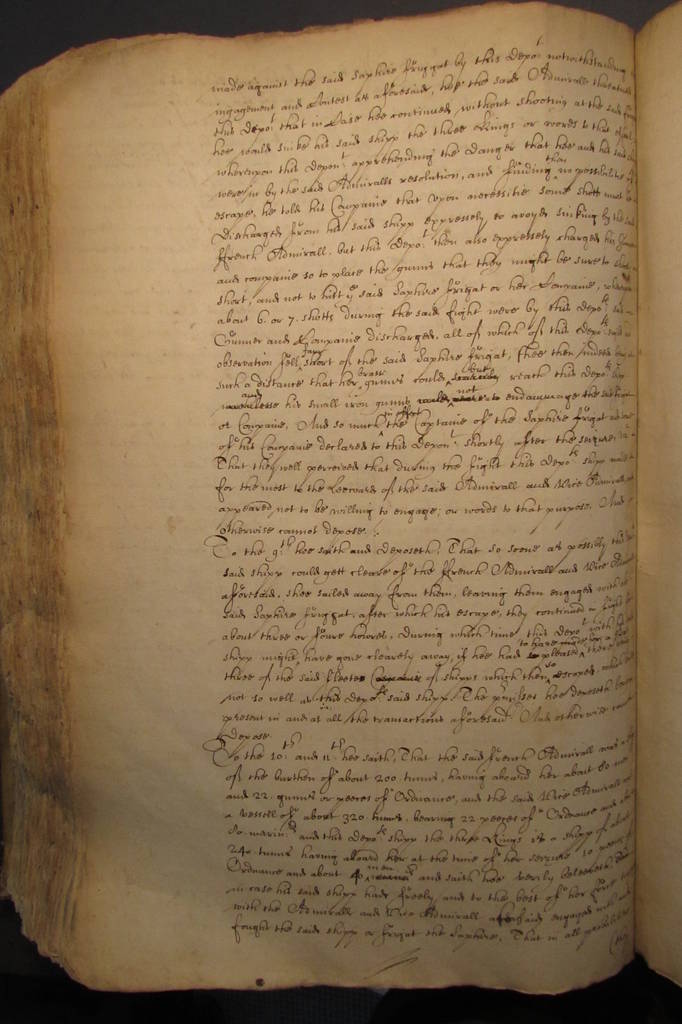 made against the said Saphire friggat by this depot: notwithstanding
ingagement and Contest as aforesaid, hee the said Admirall threatned
this depot that in Case hee continued without shooting at the said
hee would sinke his said shipp the three Kings or words to that effect
whereupon this Depont: apprehending the danger that hee and his said
were in by the said Admiralls resolution, and finding than no possibilitie of
escape, he told his Companie that upon necessitie some shott must be
discharged from his said shipp expressely to avoyd sinking by the said
ffrench Admirall. but this Depot: then also expressely charged his Gunner
and companie so to place the gunns that they might be sure to shoote
short, and not to hitt ye said Saphire frigat or her Companie,
about 6. or 7. shotts during the said fight were by this depots said
Gunner and Companie discharged. all of which of this depots
observation fell farr short of the said Saphire frigat, (hee then indeed
such a distance that her brasse gunns could but reach this depots
and his small iron gunns not to endammage the said
or Companie. And so much in effect the Captaine of the Saphire frigat and some
of his Companie declared to this Depont: shortly after the seizure,
That they well perceived that during the fight this Depots shipp
for the most to the Leeward of the said Admirall and Vice Admirall, and
appeared not to be willing to engage; or words to that purpose. And
otherwise cannot depose. /:
To the 9th. hee saith and deposeth, That so soone as possibly this
said shipp could gett cleare of the ffrench Admirall and Vice Admirall
aforesaid, shee sailed away from them, leaving them engaged with the
said Saphire friggat. after which his escape, they continued in fight
about three or foure houres, during which time this depot with his
shipp might have gone clearely away, if hee had so pleased, there being
three of the said fleete of shipps which then so escaped, which
not so well as this depots said shipp. The premisses hee deposeth being
present in and at all the transactions aforesaid. And otherwise cannot
depose.
To the 10th. and 11th. hee saith, That the said ffrench Admirall was a
of the burthen of about 200. tunns, having aboard her about 80 men
and 22. gunns or peeces of Ordnance, and the said Vice Admirall
a vessell of about 320. tunns, bearing 22 peeces of Ordnance and about
80. marinrs. and this Depots shipp the three Kings is a shipp of about
240. tunns having aboard her at the tyme of her seizure 10 peeces of
Ordnance and about men and saith hee verily beleeveth,
in case his said shipp had freely, and to the best of her force
with the Admirall and Vice Admirall aforesaid engaged with and
fought the said shipp or frigat the Saphire, That in all probabilitie